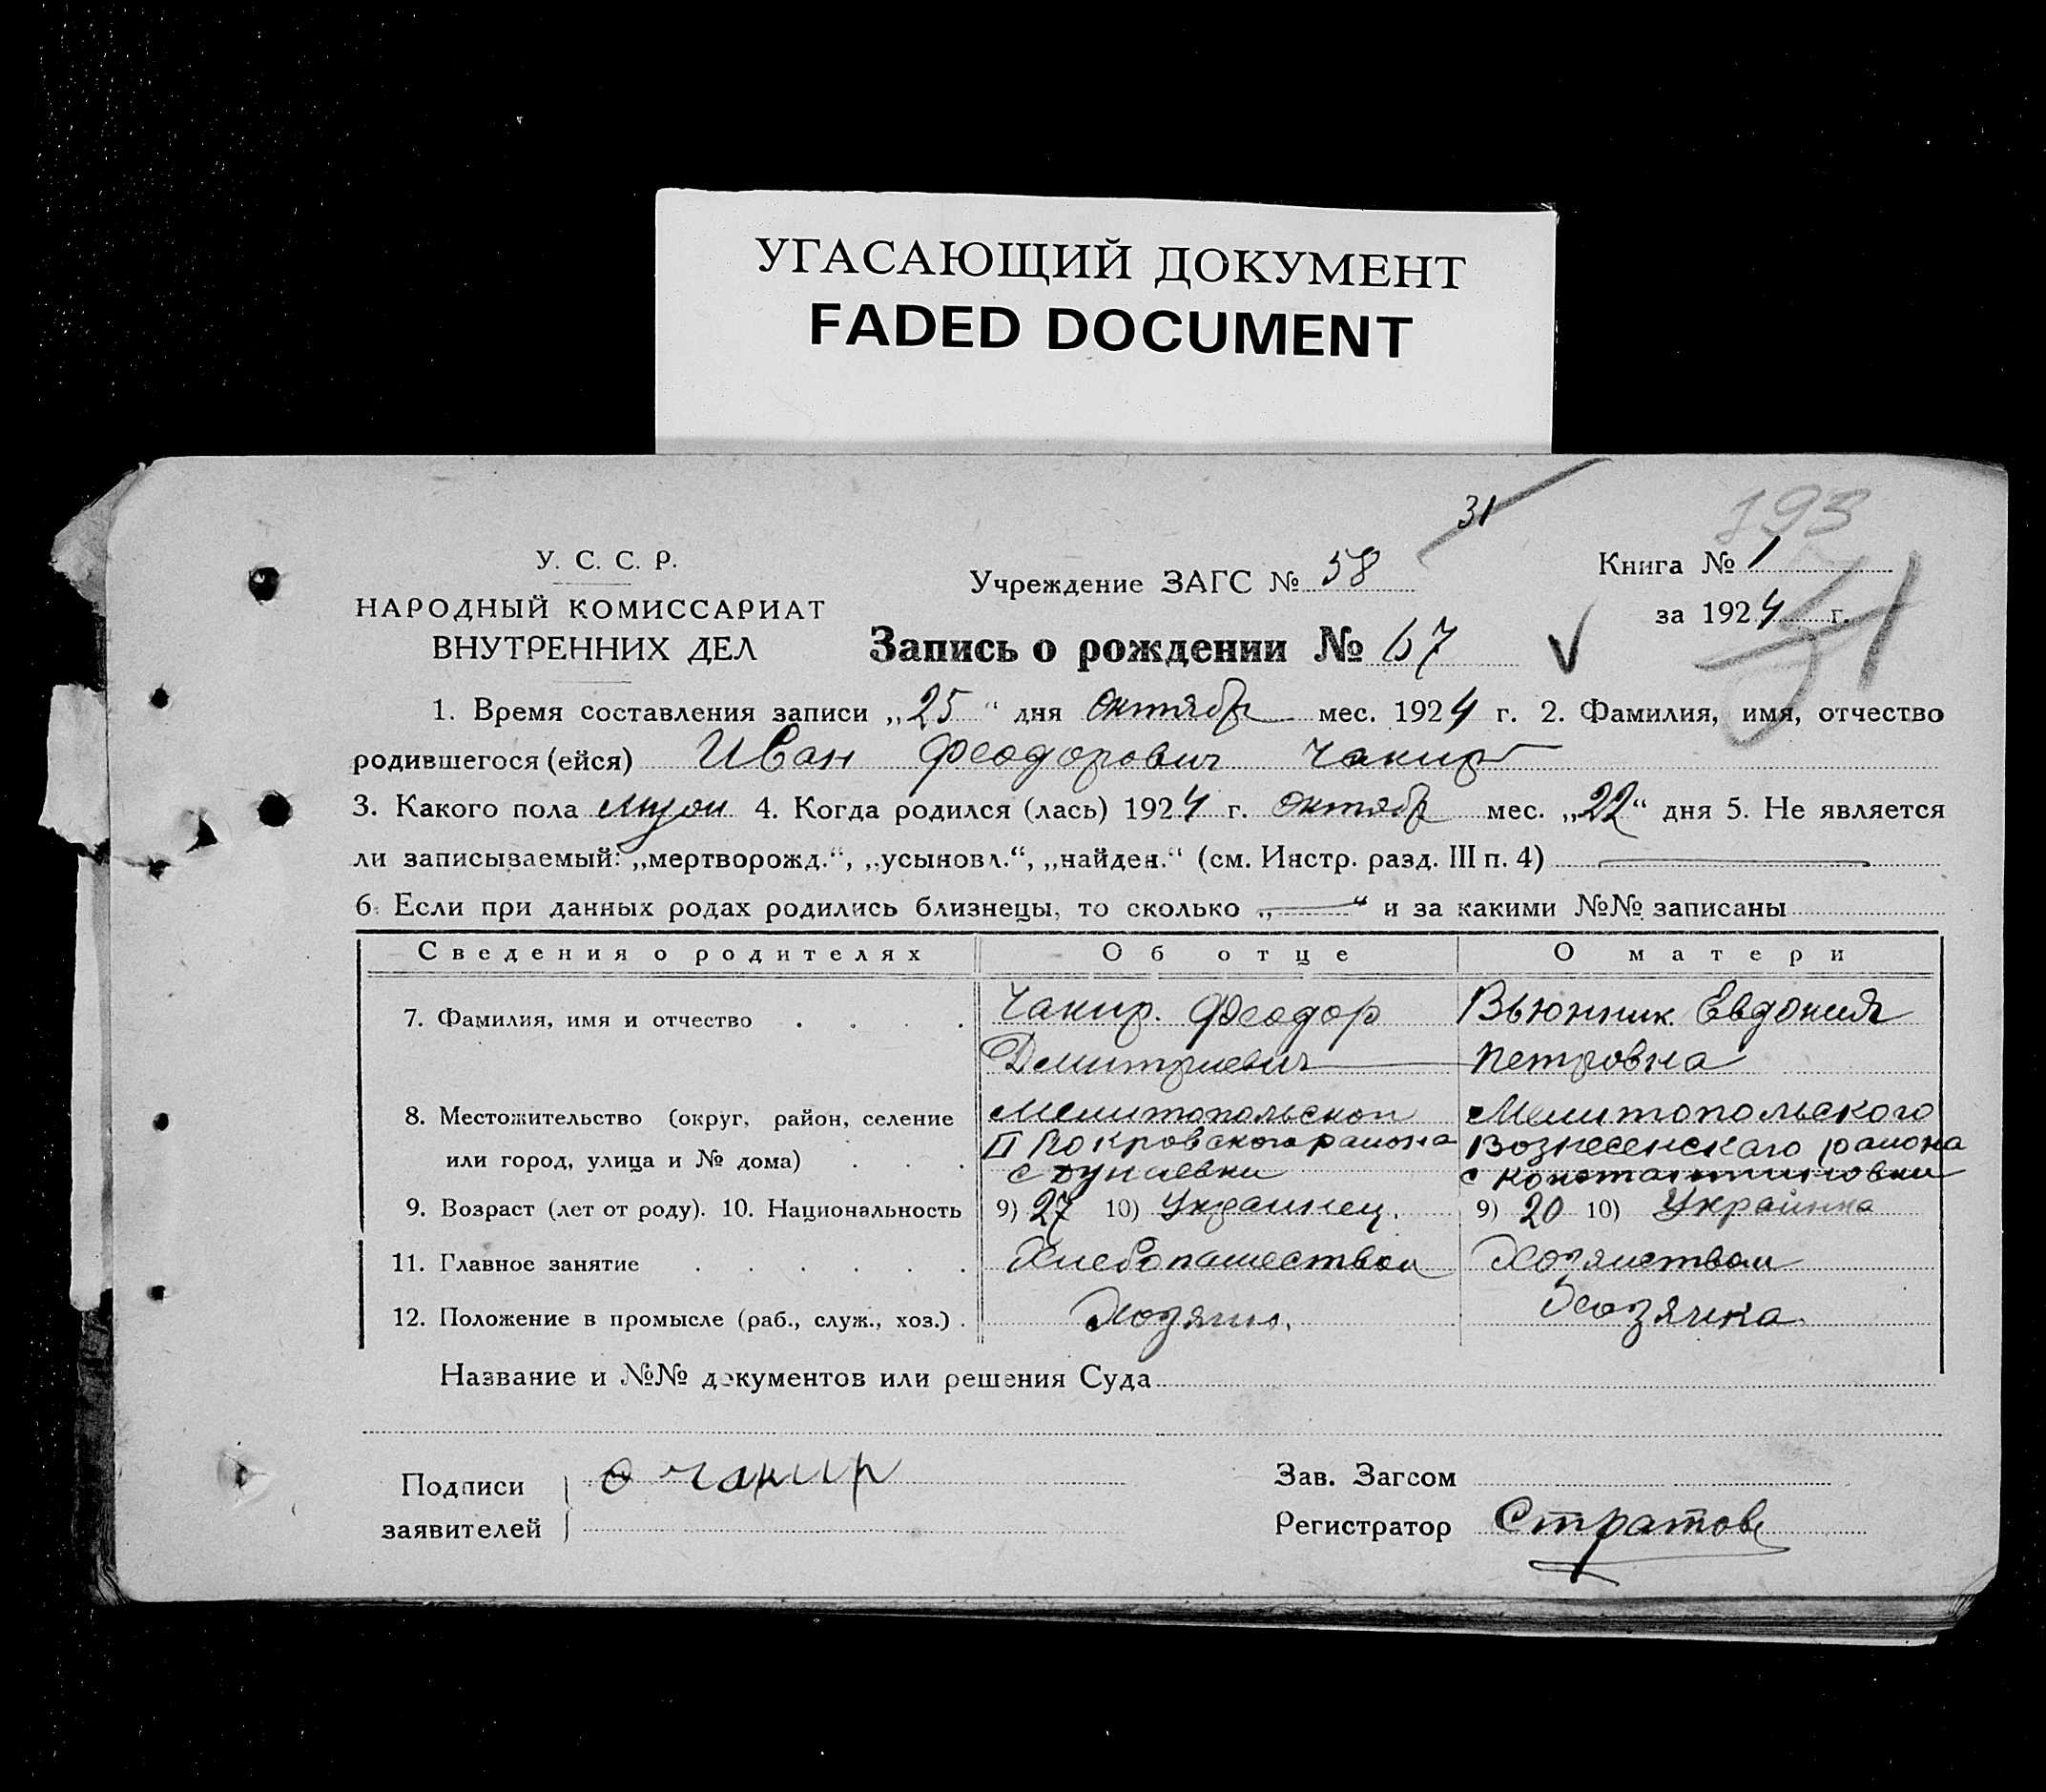 УГАСАЮЩИЙ ДОКУМЕНТ
FADED DOCUMENT
31
193
У. С. С. Р.
НАРОДНЫЙ КОМИССАРИАТ
ВНУТРЕННИХ ДЕЛ
Учреждение ЗАГС № 58
Книга № 1
за 1924 г.
Запись о рождении № 67
1. Время составления записи „25“ дня октябр мес. 1924 г. 2. Фамилия, имя, отчество
родившегося (ейся) Иван Феодорович Чакир
3. Какого пола муж 4. Когда родился (лась) 1924 г. октябр мес. „22“ дня 5. Не является
ли записываемый: „мертворожд.“, „усыновл.“, „найден.“ (см. Инстр. разд. III п. 4)
6. Если при данных родах родились близнецы, то сколько „—“ и за какими №№ записаны
Сведения о родителях Об отце О матери
7. Фамилия, имя и отчество . . . . Чакир. Феодор Вьюнник Евдокия
Дмитриевич Петровна
8. Местожительство (округ, район, селение Мелитопольском Мелитопольского
или город, улица и № дома) . . . II Покровского района Вознесенскаго района
с Дунаевки с Константиновки
9. Возраст (лет от роду). 10. Национальность 9) 27 10) Украинец. 9) 20 10) Украинка
11. Главное занятие . . . . . . Хлебопашеством Хозяйством
12. Положение в промысле (раб., служ., хоз.) . Хозяин. Хозяйка
Название и №№ документов или решения Суда
Подписи
заявителей
Чакир
Зав. Загсом
Регистратор Стратов